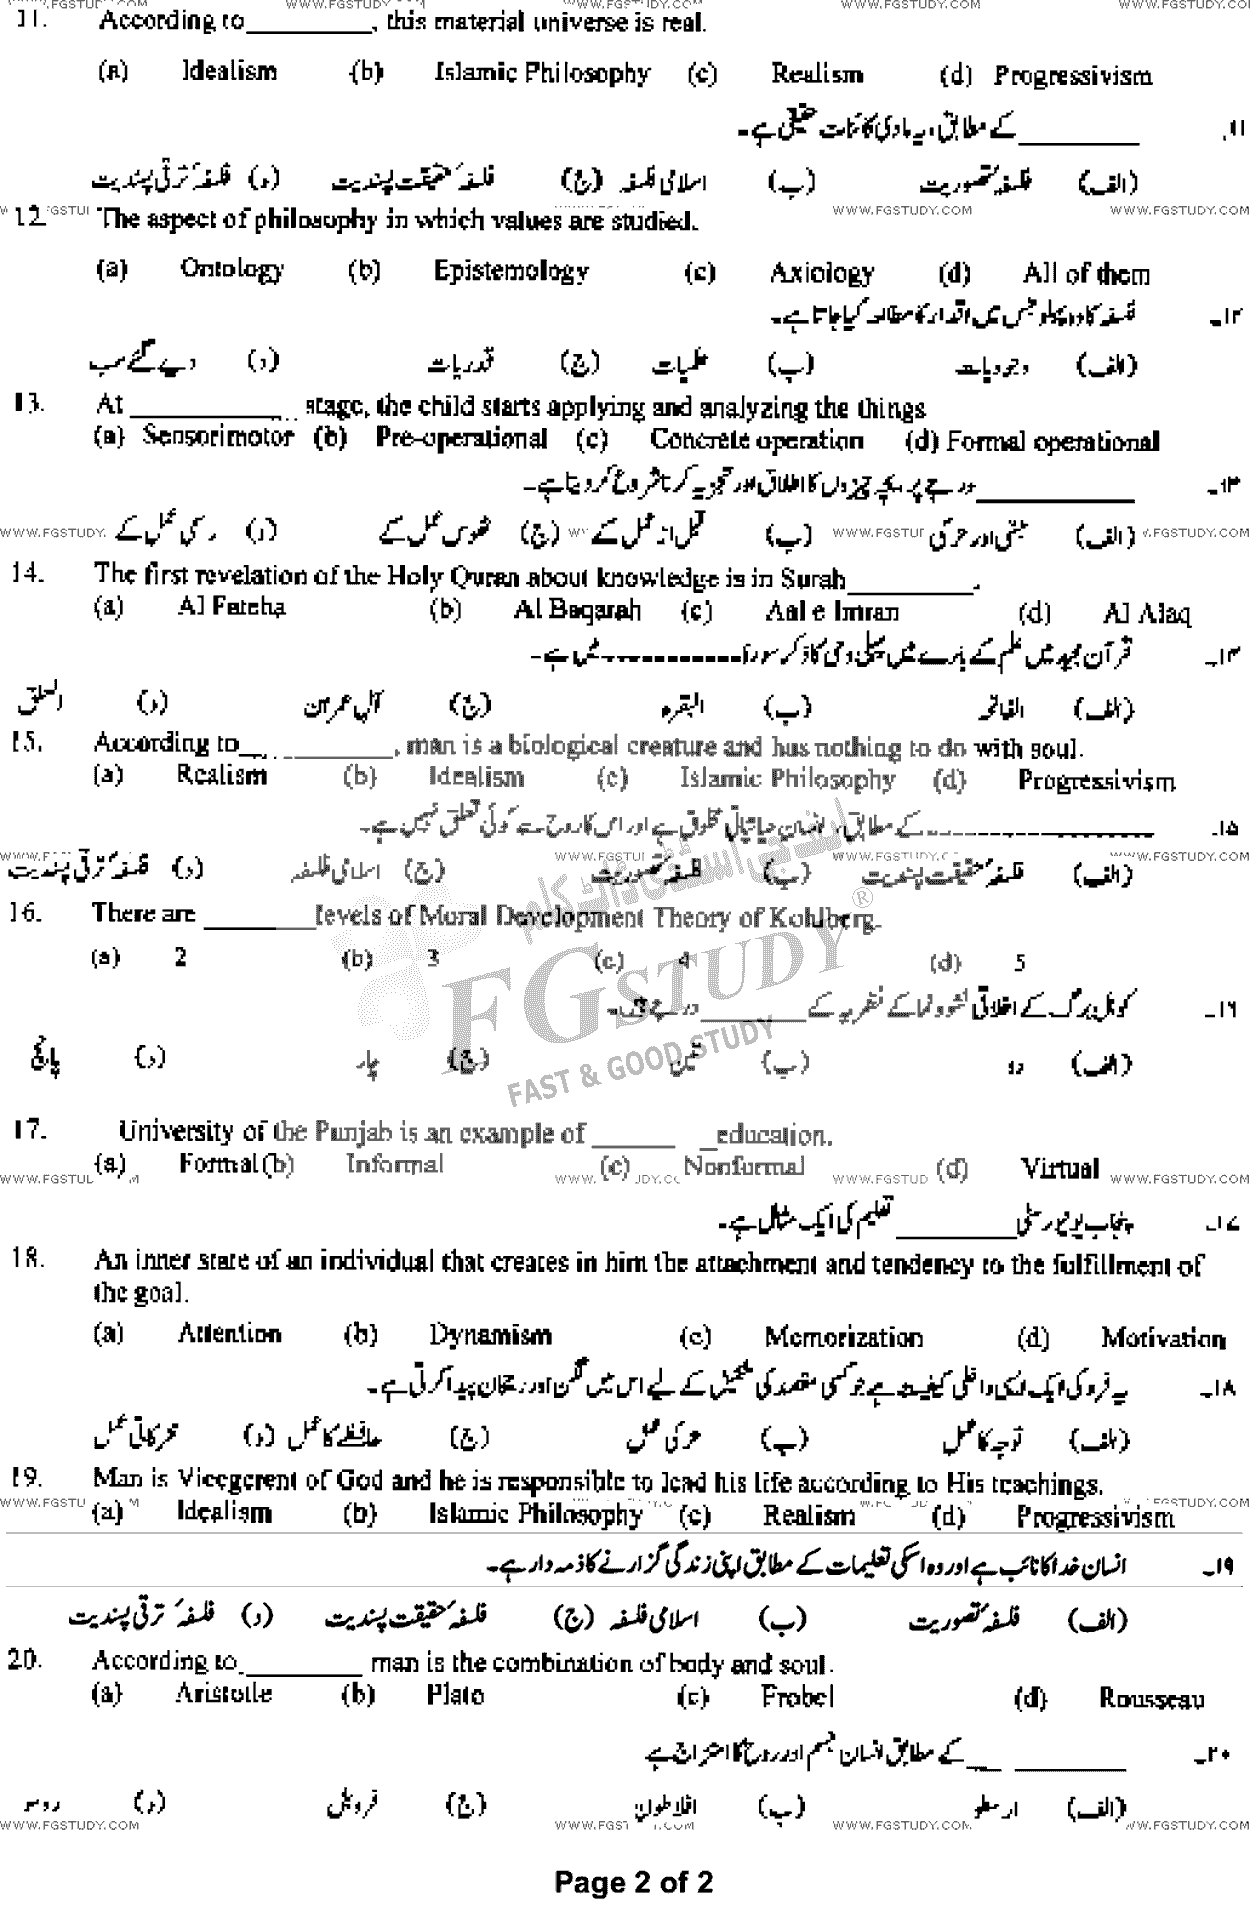 WWW.FGSTUDY.COM WWW.FGSTUDY.COM WWW.FGSTUDY.COM
11. According to__________, this material universe is real.
(a) Idealism (b) Islamic Philosophy (c) Realism (d) Progressivism
۱۱۔ __________کے مطابق، یہ مادی کائنات حقیقی ہے۔
(الف) فلسفہ تصوریت (ب) اسلامی فلسفہ (ج) فلسفہ حقیقت پسندیت (د) فلسفہ ترقی پسندیت
WWW.FGSTUDY.COM WWW.FGSTUDY.COM
12. The aspect of philosophy in which values are studied.
(a) Ontology (b) Epistemology (c) Axiology (d) All of them
۱۲۔ فلسفہ کا وہ پہلو جس میں اقدار کا مطالعہ کیا جاتا ہے۔
(الف) وجودیات (ب) علمیات (ج) قدریات (د) دیے گئے سب
13. At ____________ stage, the child starts applying and analyzing the things
(a) Sensorimotor (b) Pre-operational (c) Concrete operation (d) Formal operational
۱۳۔ ____________درجے پر بچہ چیزوں کا اطلاق اور تجزیہ کرنا شروع کر دیتا ہے۔
(الف) حسی اور حرکی (ب) قبل از عمل کے (ج) ٹھوس عمل کے (د) رسمی عمل کے
14. The first revelation of the Holy Quran about knowledge is in Surah__________.
(a) Al Fateha (b) Al Baqarah (c) Aal e Imran (d) Al Alaq
۱۴۔ قرآن مجید میں علم کے بارے میں پہلی وحی کا ذکر سورۃ------------میں ہے۔
(الف) الفاتحہ (ب) البقرہ (ج) آل عمران (د) العلق
15. According to__ . ________, man is a biological creature and has nothing to do with soul.
(a) Realism (b) Idealism (c) Islamic Philosophy (d) Progressivism
۱۵۔ --------------------کے مطابق، انسان حیاتیاتی مخلوق ہے اور اس کا روح سے کوئی تعلق نہیں ہے۔
(الف) فلسفہ حقیقت پسندیت (ب) فلسفہ تصوریت (ج) اسلامی فلسفہ (د) فلسفہ ترقی پسندیت
16. There are _________levels of Moral Development Theory of Kohlberg.
(a) 2 (b) 3 (c) 4 (d) 5
۱۶۔ کوہل برگ کے اخلاقی نشوونما کے نظریہ کے ________درجے ہیں۔
(الف) دو (ب) تین (ج) چار (د) پانچ
ایف جی اسٹڈی ڈاٹ کام
FGSTUDY ®
FAST & GOOD STUDY
17. University of the Punjab is an example of _______ _education.
(a) Formal (b) Informal (c) Nonformal (d) Virtual
WWW.FGSTUDY.COM
۱۷۔ پنجاب یونیورسٹی __________ تعلیم کی ایک مثال ہے۔
18. An inner state of an individual that creates in him the attachment and tendency to the fulfillment of
the goal.
(a) Attention (b) Dynamism (c) Memorization (d) Motivation
۱۸۔ یہ فرد کی ایک ایسی داخلی کیفیت ہے جو کسی مقصد کی تکمیل کے لیے اس میں لگن اور رجحان پیدا کرتی ہے۔
(الف) توجہ کا عمل (ب) حرکی عمل (ج) حافظے کا عمل (د) تحرکاتی عمل
19. Man is Vicegerent of God and he is responsible to lead his life according to His teachings.
(a) Idealism (b) Islamic Philosophy (c) Realism (d) Progressivism
۱۹۔ انسان خدا کا نائب ہے اور وہ اسکی تعلیمات کے مطابق اپنی زندگی گزارنے کا ذمہ دار ہے۔
(الف) فلسفہ تصوریت (ب) اسلامی فلسفہ (ج) فلسفہ حقیقت پسندیت (د) فلسفہ ترقی پسندیت
20. According to __________ man is the combination of body and soul.
(a) Aristotle (b) Plato (c) Frobel (d) Rousseau
۲۰۔ _________ ___کے مطابق انسان جسم اور روح کا امتزاج ہے
(الف) ارسطو (ب) افلاطون (ج) فروبل (د) روسو
WWW.FGSTUDY.COM WWW.FGSTUDY.COM
Page 2 of 2